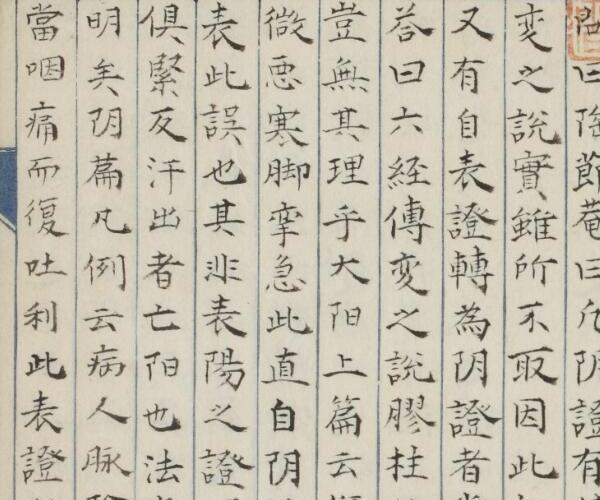 曰陶節菴曰凡阴證有
变之說實雖所不取因此
又有自表證轉為阴證者
荅曰六経傳变之說膠柱
豈無其理乎大阳上篇云
微恶寒脚挛急此直自阴
表此誤也其非表陽之證
俱緊反汗出者亡阳也法
明矣阴篇凡例云病人脉
當咽痛而復吐利此表證